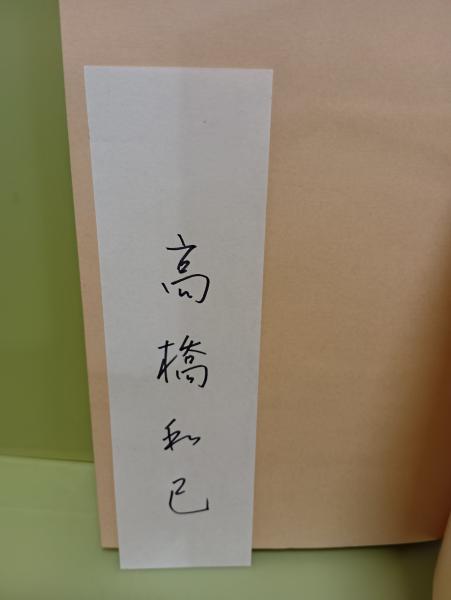 高橋和巳